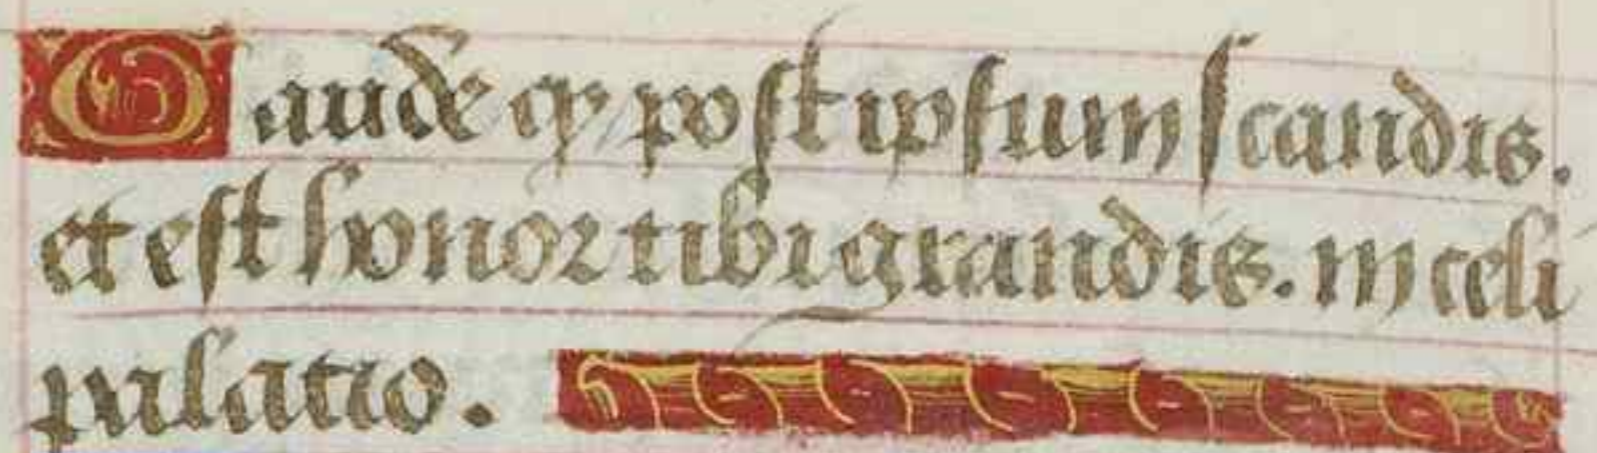 Gaude qꝫ post ipsum scandis.
et est honor tibi grandis. in celi
pulatio.